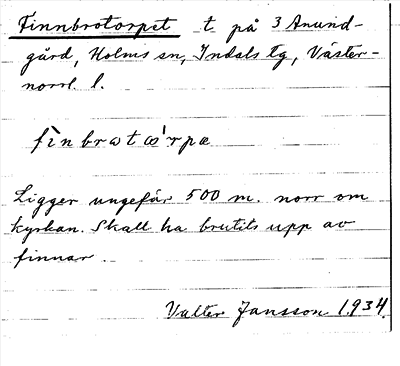 Finnbrotorpet t på 3 Anund-
gård, Holms sn, Indals tg, Väster-
norrl. l.
fìn brωt ω'rpæ
Ligger ungefär 500 m. norr om
kyrkan. Skall ha brutits upp av
finnar.
Valter Jansson 1934.